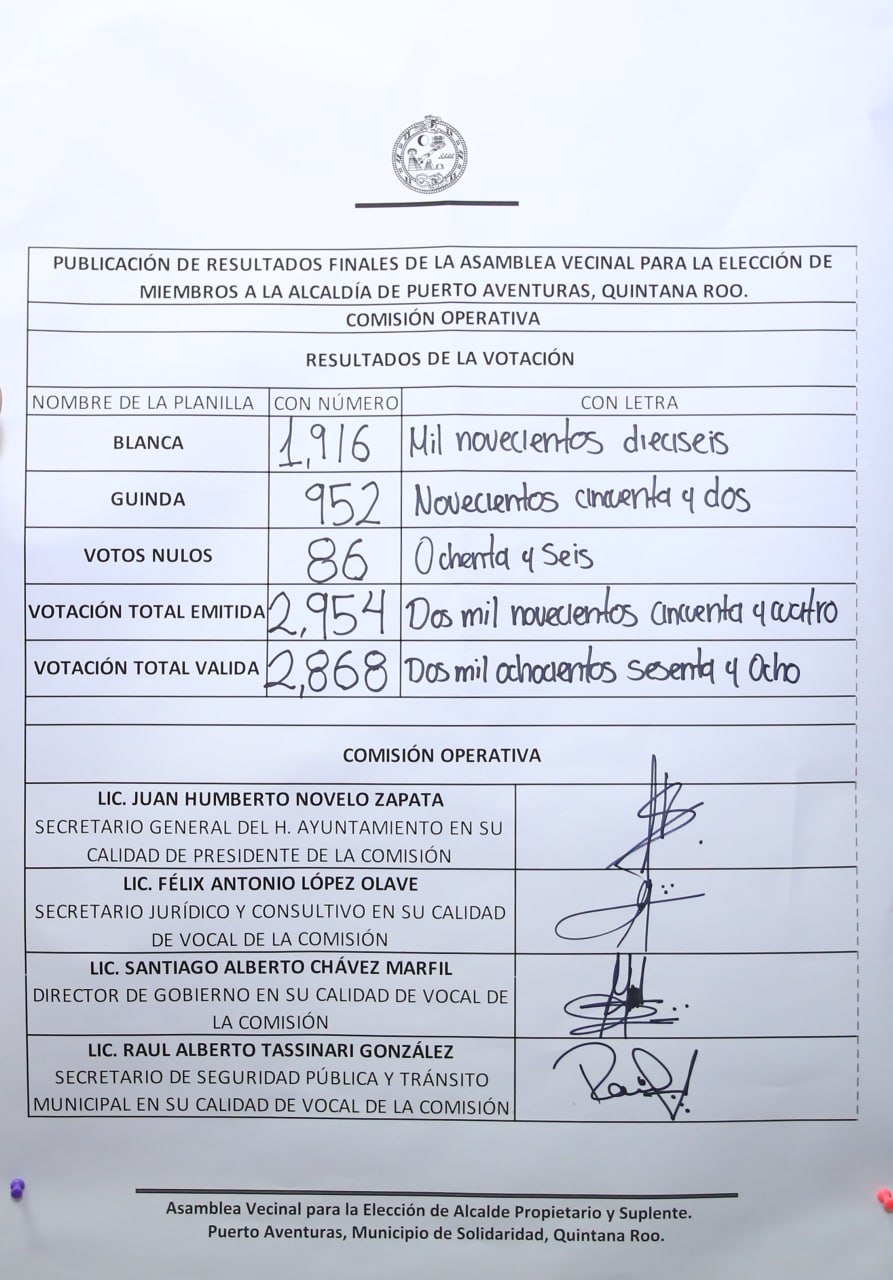 PUBLICACIÓN DE RESULTADOS FINALES DE LA ASAMBLEA VECINAL PARA LA ELECCIÓN DE
MIEMBROS A LA ALCALDÍA DE PUERTO AVENTURAS, QUINTANA ROO.
COMISIÓN OPERATIVA
RESULTADOS DE LA VOTACIÓN
NOMBRE DE LA PLANILLA CON NÚMERO CON LETRA
BLANCA 1,916 Mil novecientos dieciseis
GUINDA 952 Novecientos cincuenta y dos
VOTOS NULOS 86 Ochenta y Seis
VOTACIÓN TOTAL EMITIDA 2,954 Dos mil novecientos cincuenta y cuatro
VOTACIÓN TOTAL VALIDA 2,868 Dos mil ochocientos sesenta y Ocho
COMISIÓN OPERATIVA
LIC. JUAN HUMBERTO NOVELO ZAPATA
SECRETARIO GENERAL DEL H. AYUNTAMIENTO EN SU
CALIDAD DE PRESIDENTE DE LA COMISIÓN
LIC. FÉLIX ANTONIO LÓPEZ OLAVE
SECRETARIO JURÍDICO Y CONSULTIVO EN SU CALIDAD
DE VOCAL DE LA COMISIÓN
LIC. SANTIAGO ALBERTO CHÁVEZ MARFIL
DIRECTOR DE GOBIERNO EN SU CALIDAD DE VOCAL DE
LA COMISIÓN
LIC. RAUL ALBERTO TASSINARI GONZÁLEZ
SECRETARIO DE SEGURIDAD PÚBLICA Y TRÁNSITO
MUNICIPAL EN SU CALIDAD DE VOCAL DE LA COMISIÓN
Asamblea Vecinal para la Elección de Alcalde Propietario y Suplente.
Puerto Aventuras, Municipio de Solidaridad, Quintana Roo.